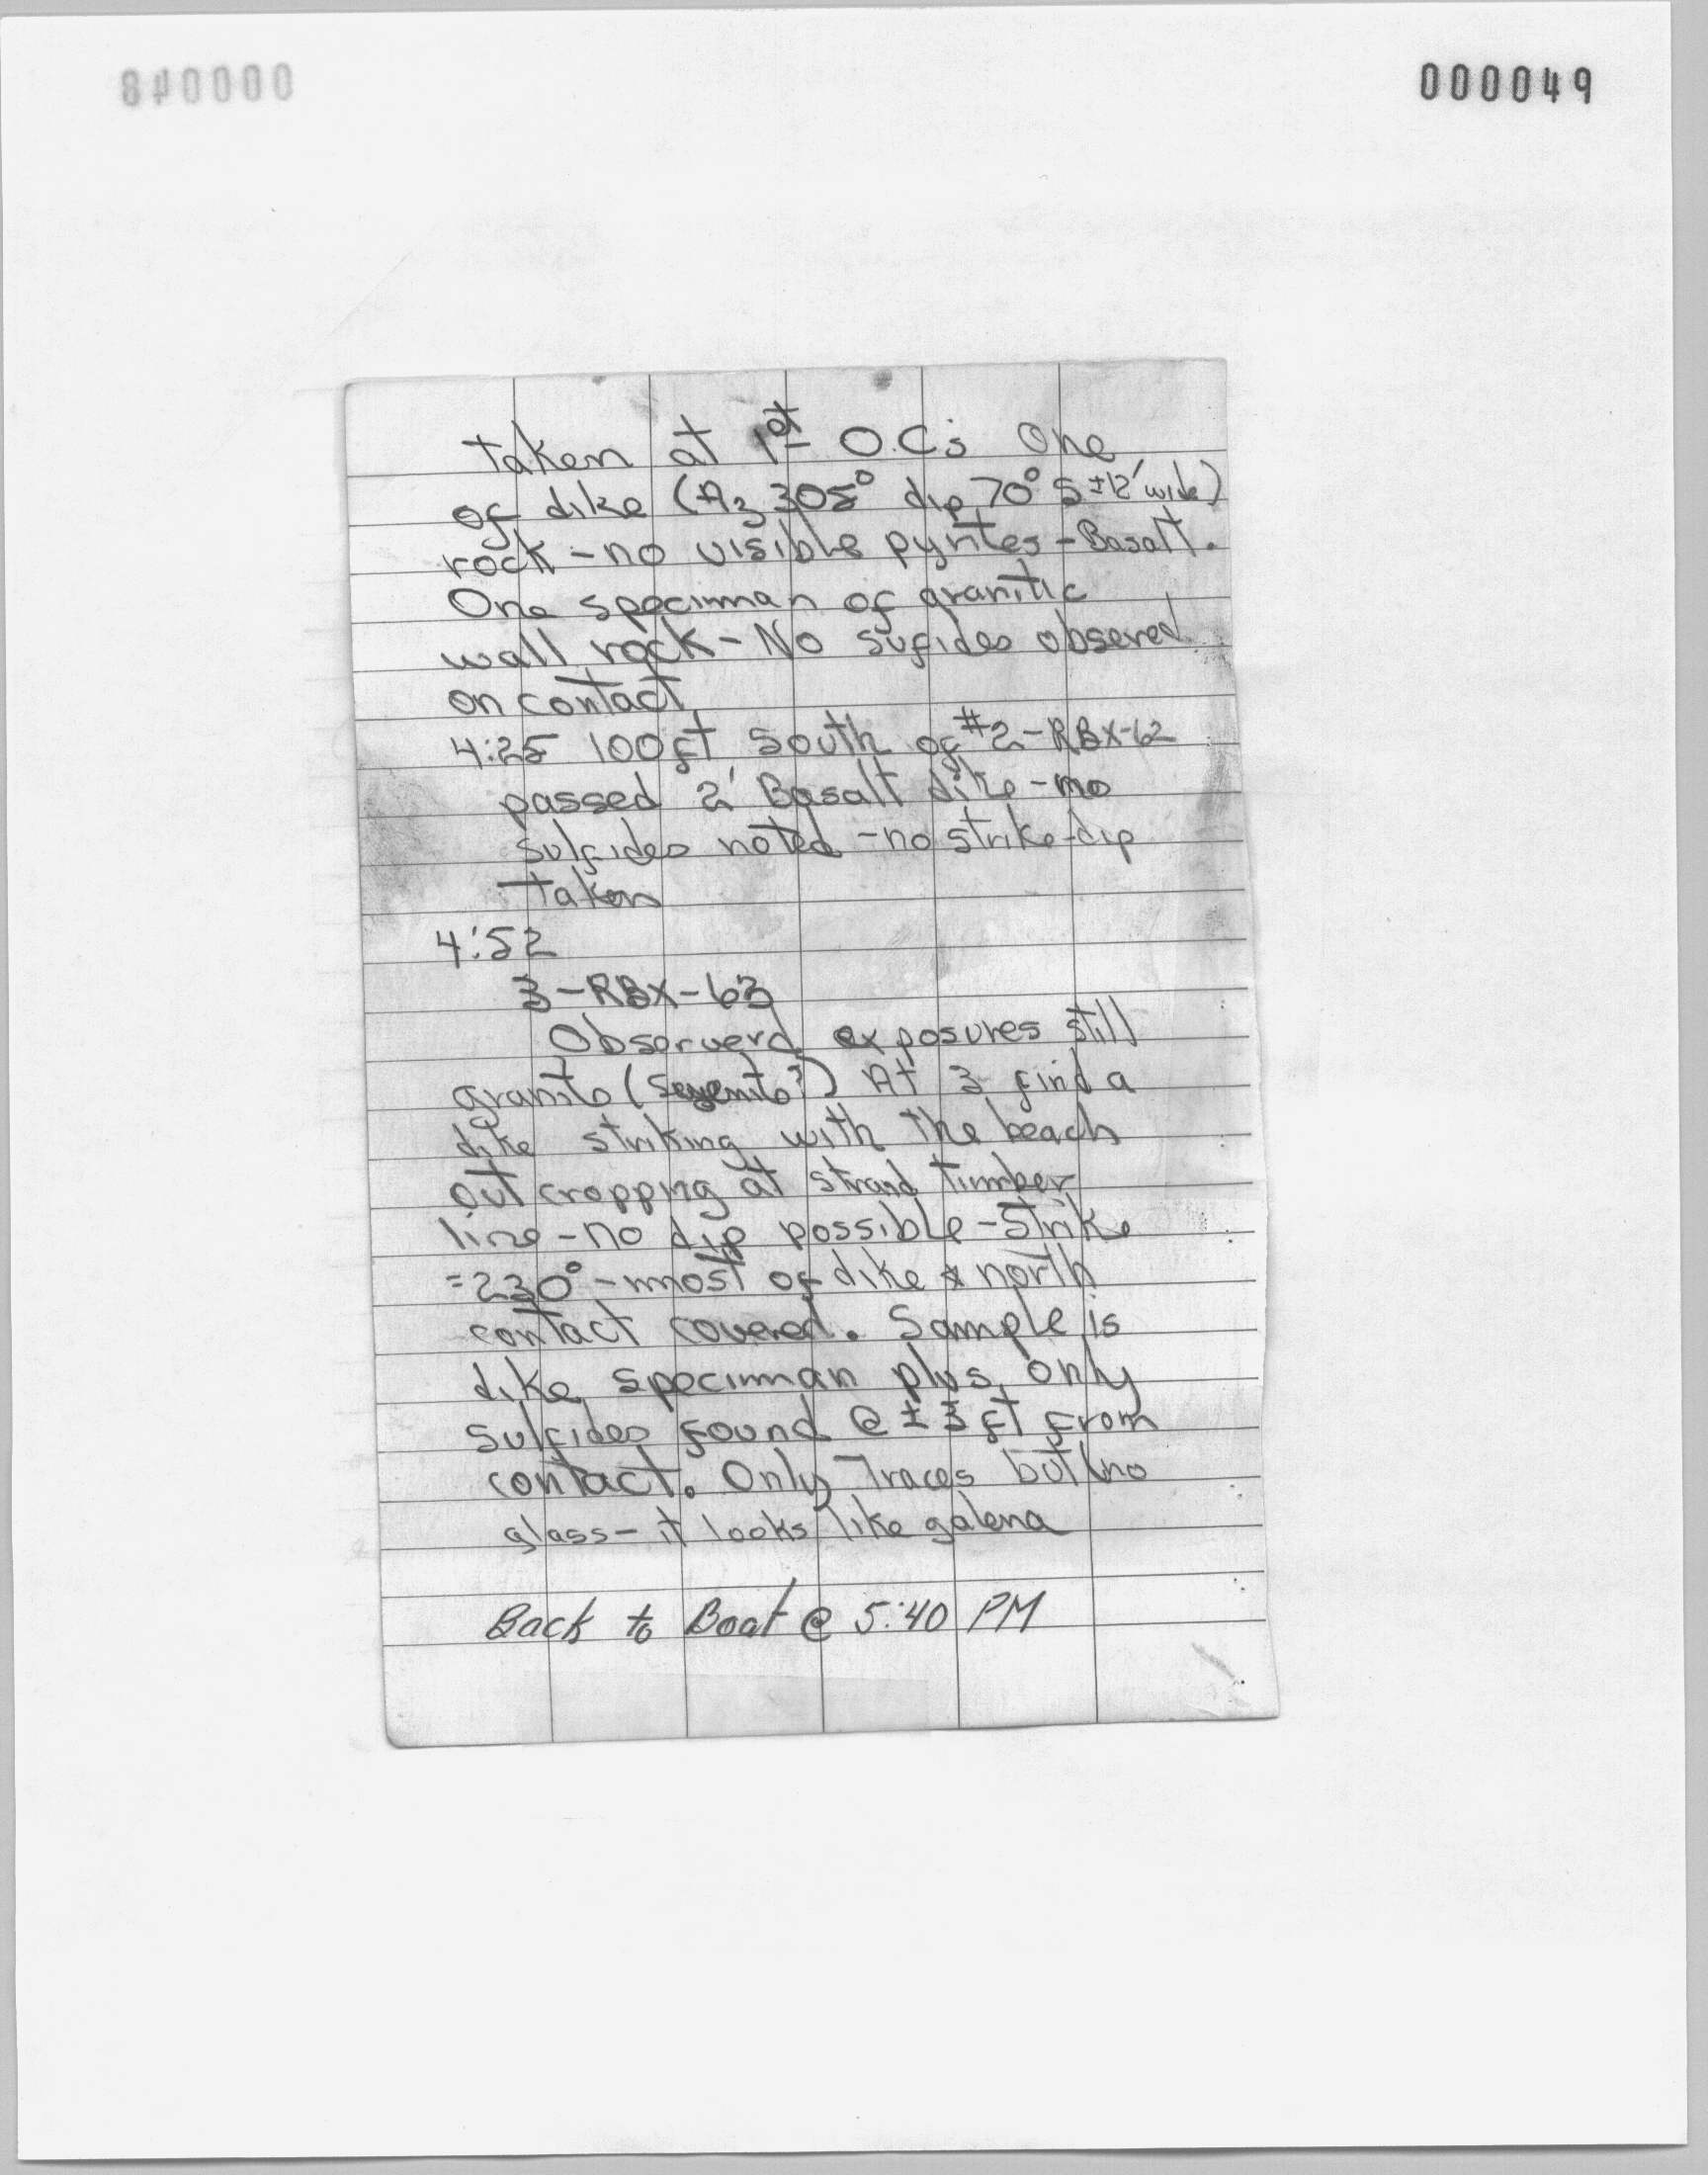 000049
taken at 1st O.C.s One
of dike (Az 305° dip 70° S ±12' wide)
rock - no visible pyrites - Basalt.
One speciman of granitic
wall rock - No sufides obsered
on contact
4:25 100ft South of #2-RBX-62
passed 2' Basalt dike - no
sulfides noted - no strike-dip
taken
4:52
3-RBX-63
Observerd exposures still
granite (Seyenite?) At 3 find a
dike striking with the beach
out cropping at strand timber
line - no dip possible - Strike
=230° - most of dike & north
contact covered. Sample is
dike speciman plus only
sulfides found @ ± 3 ft from
contact. Only Traces but no
glass - it looks like galena
Back to Boat @ 5:40 PM